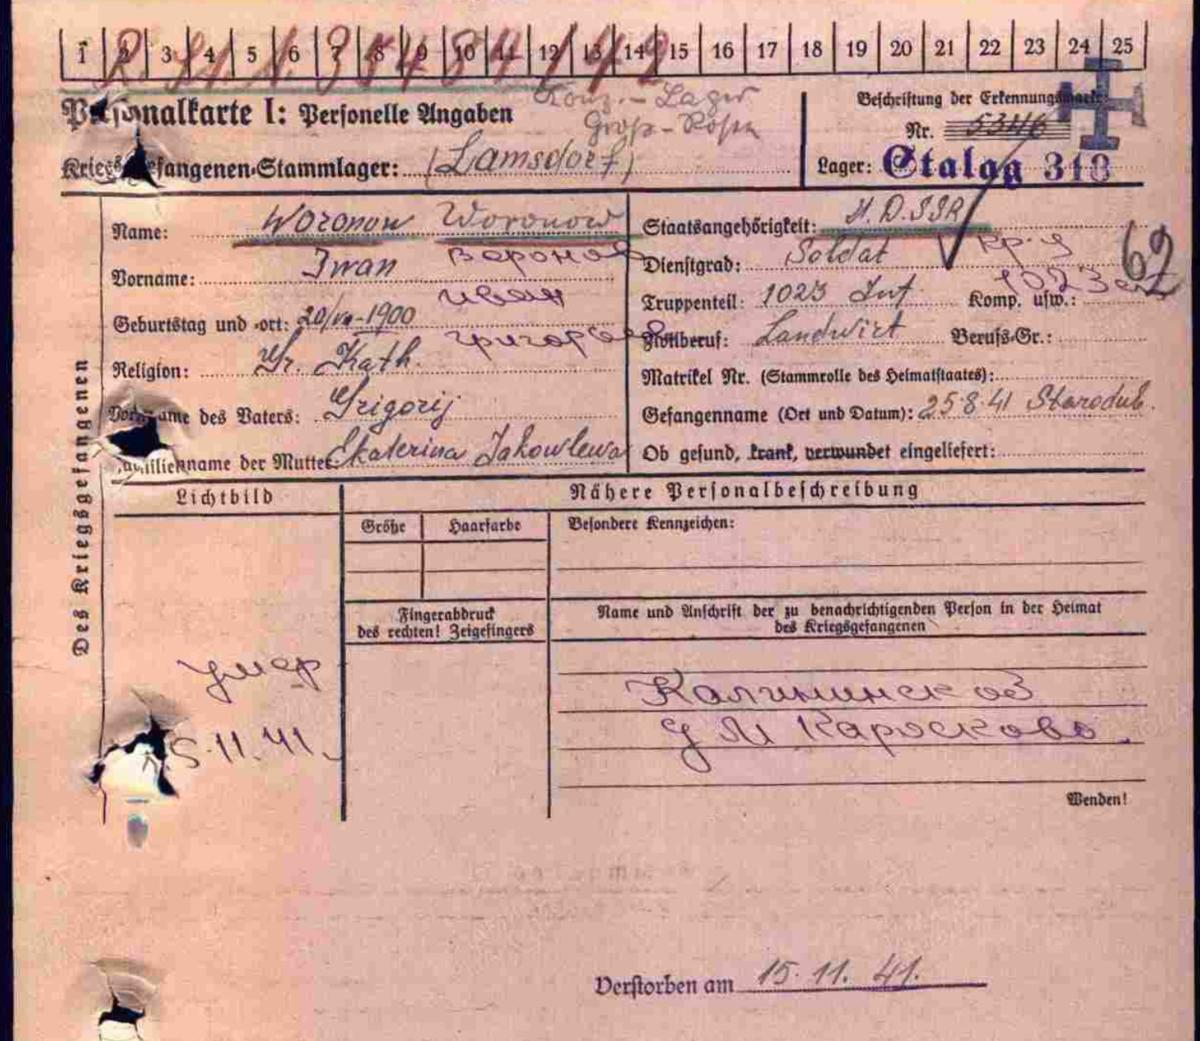 1 2 3 4 5 6 7 8 9 10 11 12 13 14 15 16 17 18 19 20 21 22 23 24 25
Personalkarte I: Personelle Angaben
Konz.-Lager
Groß-Rosen
Beschriftung der Erkennungsmarke
Nr. 5346
Kriegsgefangenen-Stammlager: (Lamsdorf)
Lager: Stalag 318
Des Kriegsgefangenen
Name: Woronow Woronow
Воронов
Vorname: Iwan
Иван
Geburtstag und -ort: 20/VII-1900
Григорьев
Religion: Gr. Kath.
Vorname des Vaters: Grigorij
Familienname der Mutter: Ekaterina Jakowlewa
Staatsangehörigkeit: U.D.SSR
62
Dienstgrad: Soldat
Truppenteil: 1023 Inf Komp. usw.:
1023
Zivilberuf: Landwirt Berufs-Gr.:
Matrikel Nr. (Stammrolle des Heimatstaates):
Gefangenname (Ort und Datum): 25.8.41 Starodub.
Ob gesund, krank, verwundet eingeliefert:
Lichtbild
Nähere Personalbeschreibung
Größe Haarfarbe Besondere Kennzeichen:
Fingerabdruck
des rechten! Zeigefingers
Name und Anschrift der zu benachrichtigenden Person in der Heimat
des Kriegsgefangenen
умер
5.11.41.
Калининск об
Wenden!
Verstorben am 15. 11. 41.